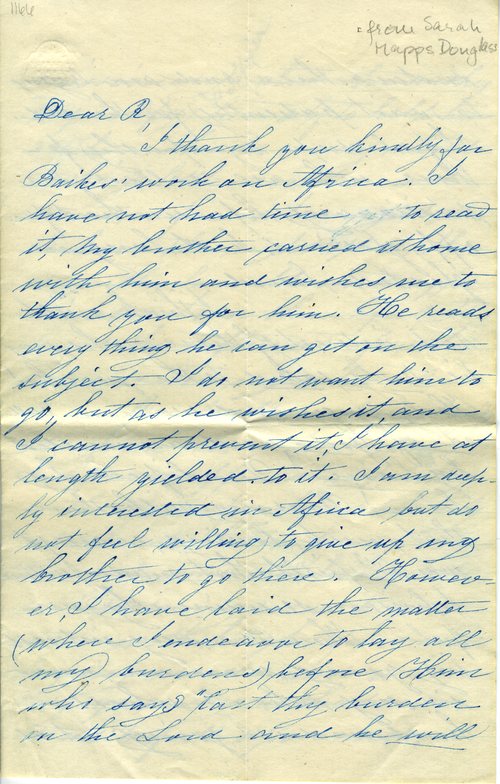 1166
from Sarah
Mapps Douglass
Dear R,
I thank you kindly for
Baikes' work on Africa. I
have not had time to read
it, my brother carried it home
with him and wishes me to
thank you for him. He reads
every thing he can get on the
subject. I do not want him to
go, but as he wishes it, and
I cannot prevent it, I have at
length yielded to it. I am deep-
ly interested in Africa but do
not feel willing to give up my
brother to go there. Howev-
er, I have laid the matter
(where I endeavor to lay all
my burdens) before Him
who says "Cast thy burden
on the Lord and he will